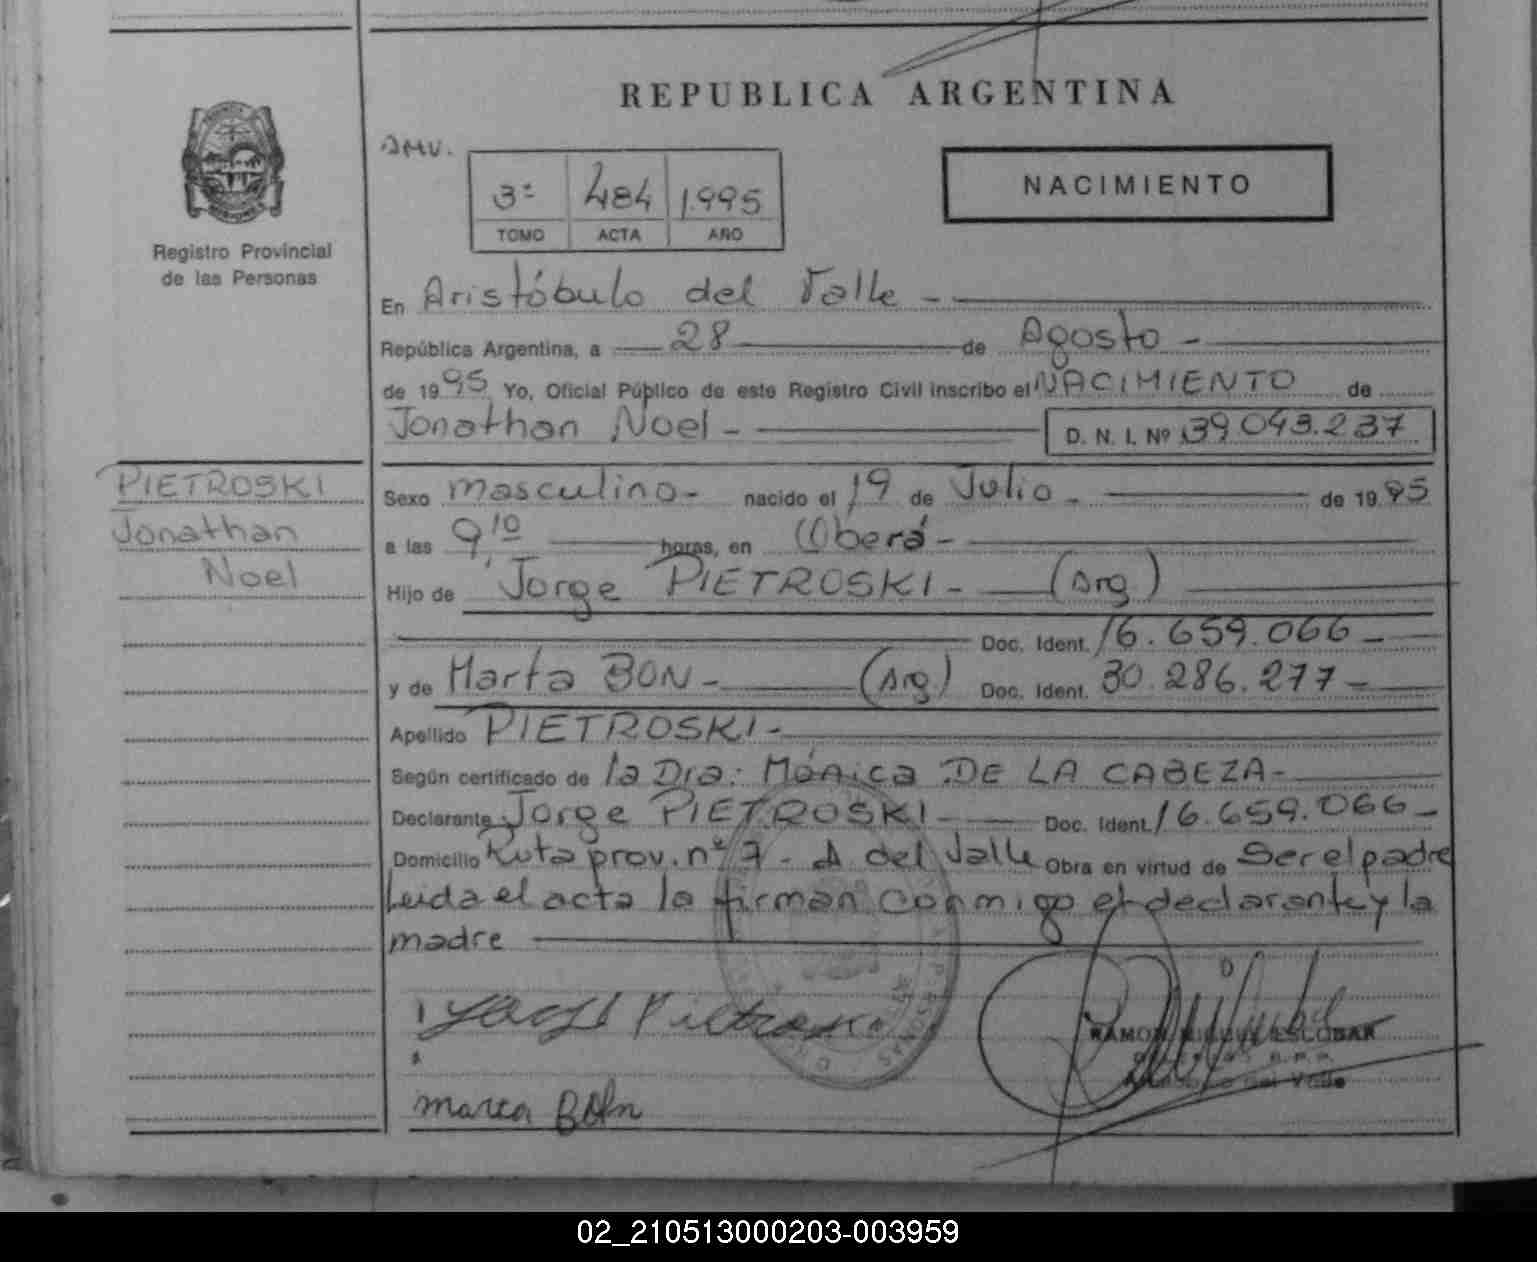 REPUBLICA ARGENTINA
Registro Provincial
de las Personas
NACIMIENTO
3º 484 1.995
TOMO ACTA AÑO
En Aristóbulo del Valle -
República Argentina, a 28 de Agosto -
de 19 95 Yo, Oficial Público de este Registro Civil inscribo el NACIMIENTO de
Jonathan Noel - D. N. I. Nº 39.043.237
PIETROSKI
Jonathan
Noel
Sexo masculino - nacido el 19 de Julio - de 19 95
a las 9,10 horas, en Oberá -
Hijo de Jorge PIETROSKI - (Arg)
Doc. Ident. 16.659.066 -
y de Marta BON - (Arg) Doc. Ident. 30.286.277 -
Apellido PIETROSKI -
Según certificado de la Dra: Mónica DE LA CABEZA -
Declarante Jorge PIETROSKI - Doc. Ident. 16.659.066 -
Domicilio Ruta prov. nº 7 - A del Valle Obra en virtud de Ser el padre
Leida el acta la firman conmigo el declarante y la
madre
Pietroski
RAMON MIGUEL ESCOBAR
del Valle
marta
02_210513000203-003959